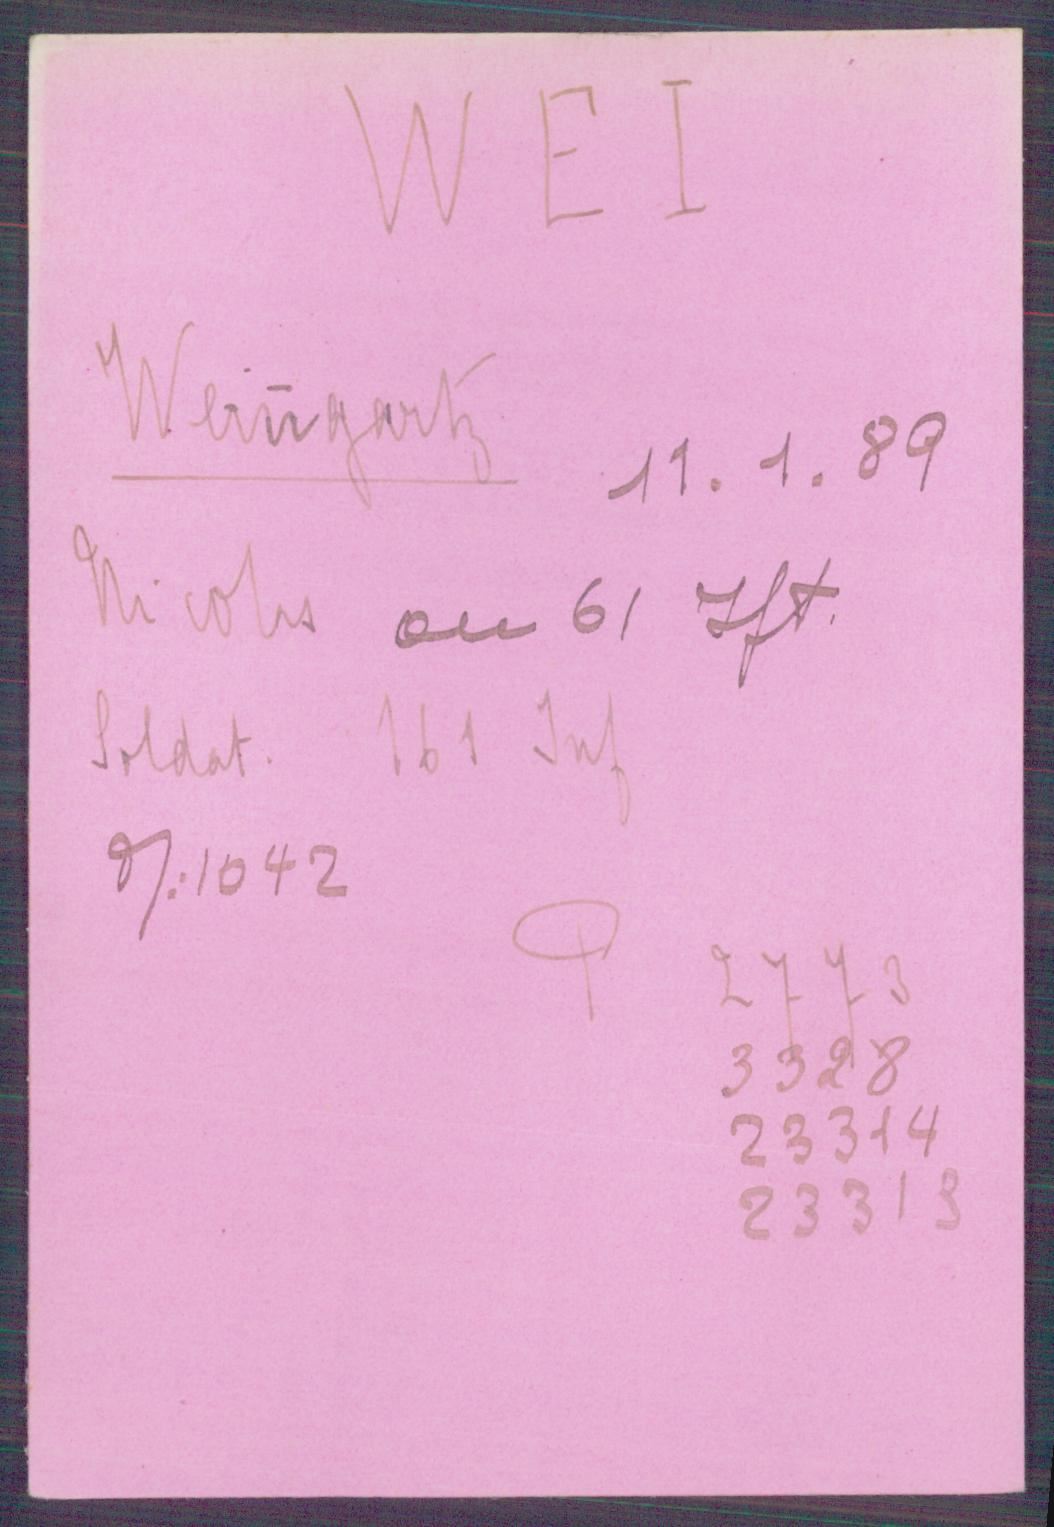 W E I
Weingartz
11. 1. 89
Nicolas ou 61 Ift.
Soldat. 161 Inf
N:1042
P 2773
3328
23314
23313